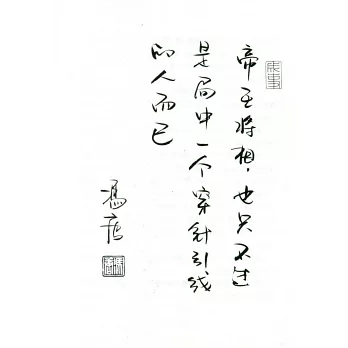 帝王将相，也只不过
是局中一个穿针引线
的人而已
冯唐